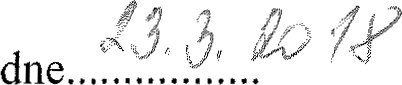 dne 23. 3. 2018